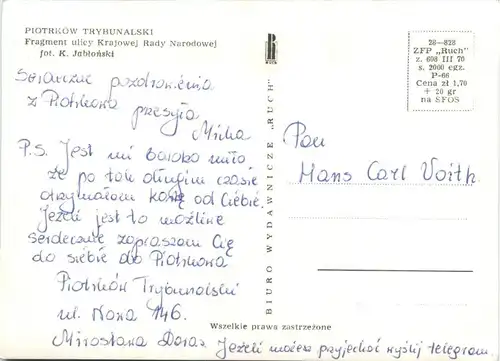 PIOTRKÓW TRYBUNALSKI
Fragment ulicy Krajowej Rady Narodowej
fot. K. Jabłoński
Serdeczne pozdrowienia
z Piotrkowa przesyła
Mirka
P.S. Jest mi bardzo miło
że po tak długim czasie
otrzymałam kartkę od Ciebie.
Jeżeli jest to możliwe
serdecznie zapraszam Cię
do siebie do Piotrkowa
Piotrków Trybunalski
ul. Nowa 146.
Mirosława
Jeżeli możesz przyjechać wyślij telegram
BIURO WYDAWNICZE „RUCH”
RUCH
28—828
ZFP „Ruch”
z. 608 III 70
s. 2000 egz.
P-66
Cena zł 1,70
+ 20 gr
na SFOS
Pan
Hans Carl Voith
Wszelkie prawa zastrzeżone